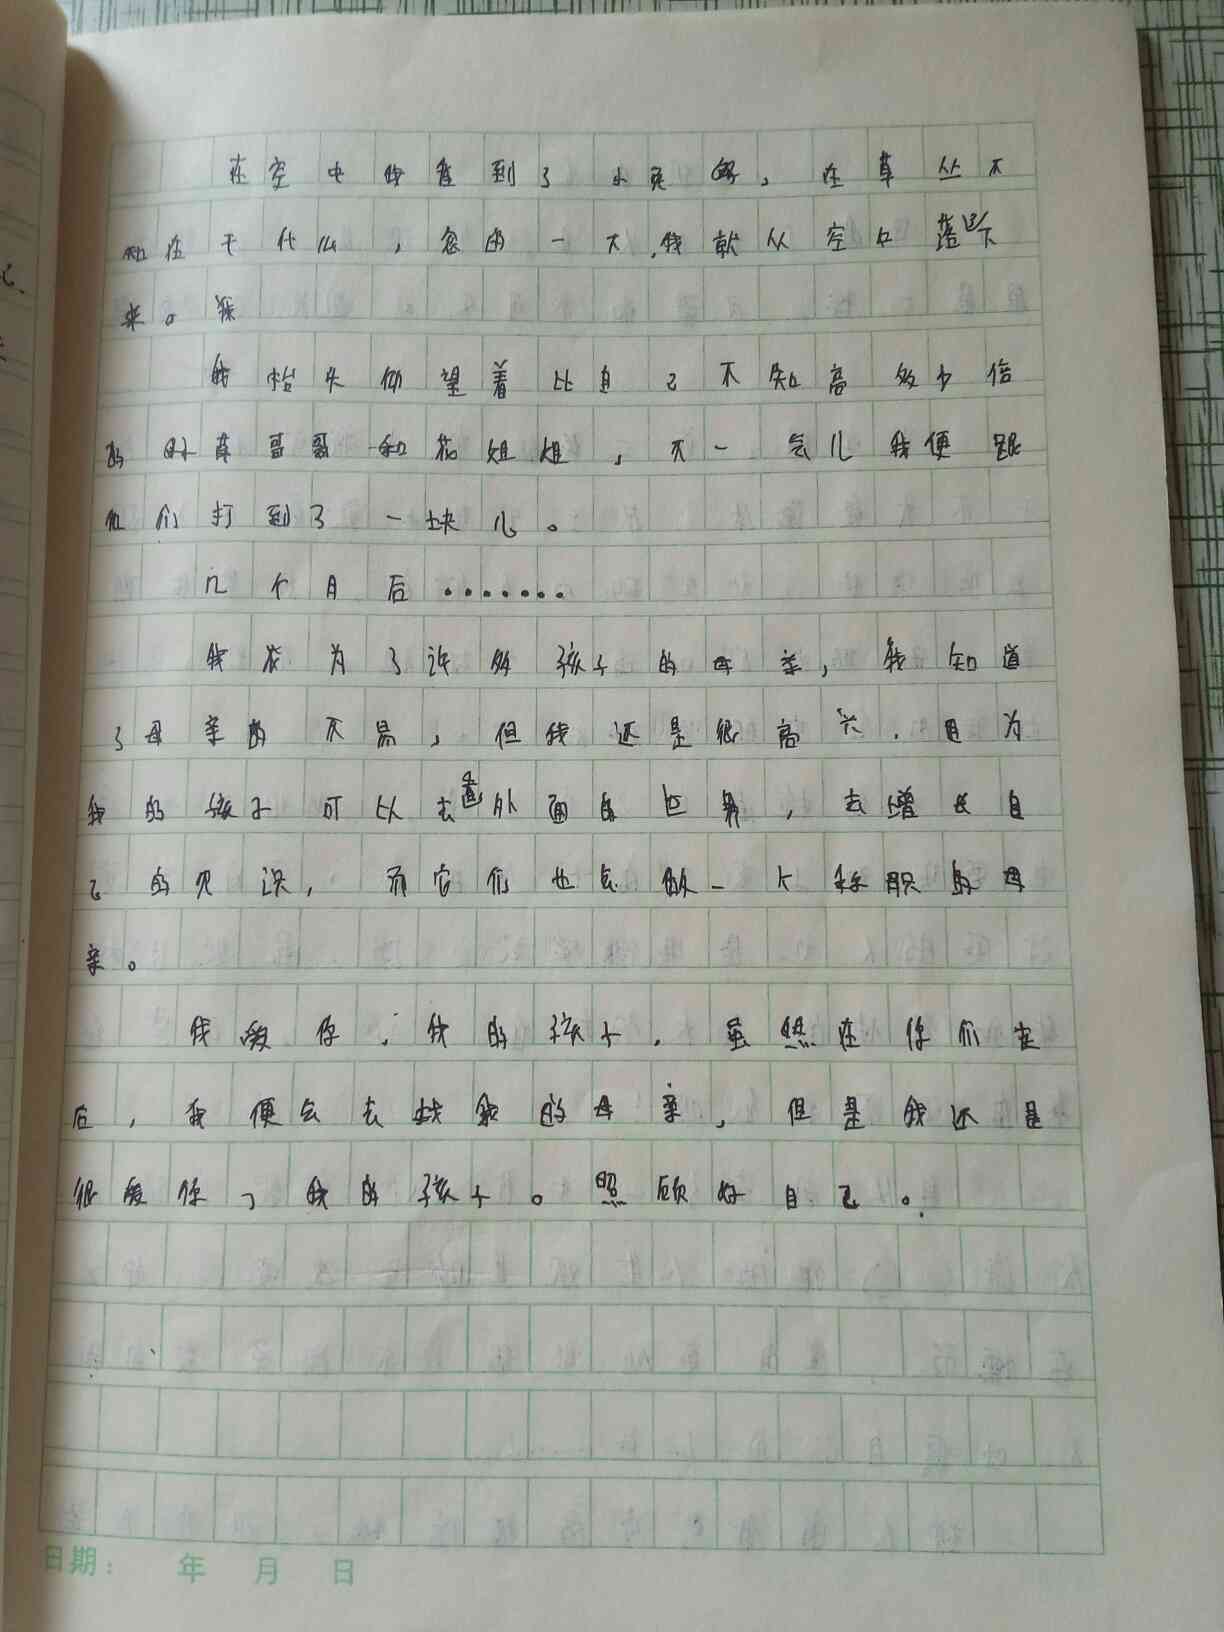 在空中我看到了小兔妈,在草丛不
知在干什么,忽的一下,我就从空中落下
来。
我抬头仰望着比自己不知高多少倍
的小草哥哥和花姐姐,不一会儿我便跟
他们打到了一块儿。
几个月后.......
我成为了许多孩子的母亲,我知道
了母亲的不易,但我还是很高兴.因为
我的孩子可以去看外面的世界,去增长自
己的见识,而它们也会做一个称职的母
亲。
我爱你,我的孩子.虽然在你们走
后,我便会去找我的母亲,但是我还是
很爱你,我的孩子。照顾好自己。
日期: 年 月 日